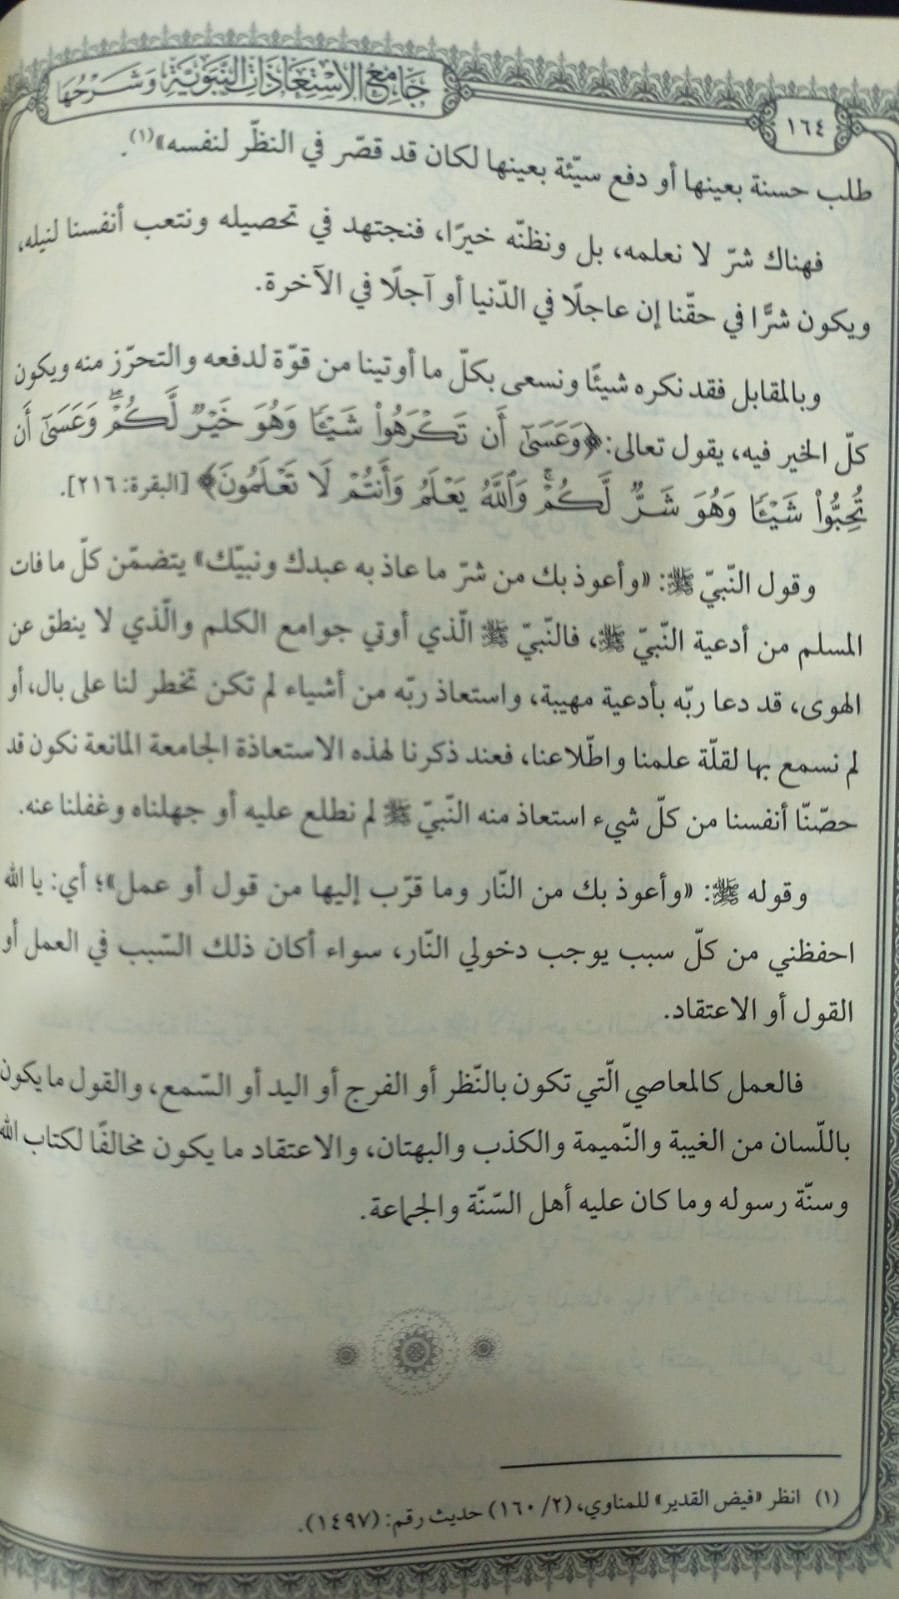 جامع الاستعاذات النبوية وشرحها
١٦٤
طلب حسنة بعينها أو دفع سيّئة بعينها لكان قد قصّر في النظّر لنفسه»(١).
فهناك شرّ لا نعلمه، بل ونظنّه خيرًا، فنجتهد في تحصيله ونتعب أنفسنا لنيله،
ويكون شرًّا في حقّنا إن عاجلًا في الدّنيا أو آجلًا في الآخرة.
وبالمقابل فقد نكره شيئًا ونسعى بكلّ ما أوتينا من قوّة لدفعه والتحرّز منه ويكون
كلّ الخير فيه، يقول تعالى: ﴿وَعَسَىٰٓ أَن تَكْرَهُوا۟ شَيْـًٔا وَهُوَ خَيْرٌ لَّكُمْ ۖ وَعَسَىٰٓ أَن
تُحِبُّوا۟ شَيْـًٔا وَهُوَ شَرٌّ لَّكُمْ ۗ وَٱللَّهُ يَعْلَمُ وَأَنتُمْ لَا تَعْلَمُونَ﴾ [البقرة: ٢١٦].
وقول النّبيّ ﷺ: «وأعوذ بك من شرّ ما عاذ به عبدك ونبيّك» يتضمّن كلّ ما فات
المسلم من أدعية النّبيّ ﷺ، فالنّبيّ ﷺ الّذي أوتي جوامع الكلم والّذي لا ينطق عن
الهوى، قد دعا ربّه بأدعية مهيبة، واستعاذ ربّه من أشياء لم تكن تخطر لنا على بال، أو
لم نسمع بها لقلّة علمنا واطّلاعنا، فعند ذكرنا لهذه الاستعاذة الجامعة المانعة نكون قد
حصّنّا أنفسنا من كلّ شيء استعاذ منه النّبيّ ﷺ لم نطلع عليه أو جهلناه وغفلنا عنه.
وقوله ﷺ: «وأعوذ بك من النّار وما قرّب إليها من قول أو عمل»؛ أي: يا الله
احفظني من كلّ سبب يوجب دخولي النّار، سواء أكان ذلك السّبب في العمل أو
القول أو الاعتقاد.
فالعمل كالمعاصي الّتي تكون بالنّظر أو الفرج أو اليد أو السّمع، والقول ما يكون
باللّسان من الغيبة والنّميمة والكذب والبهتان، والاعتقاد ما يكون مخالفًا لكتاب الله
وسنّة رسوله وما كان عليه أهل السّنّة والجماعة.
(١) انظر «فيض القدير» للمناوي، (٢/ ١٦٠) حديث رقم: (١٤٩٧).